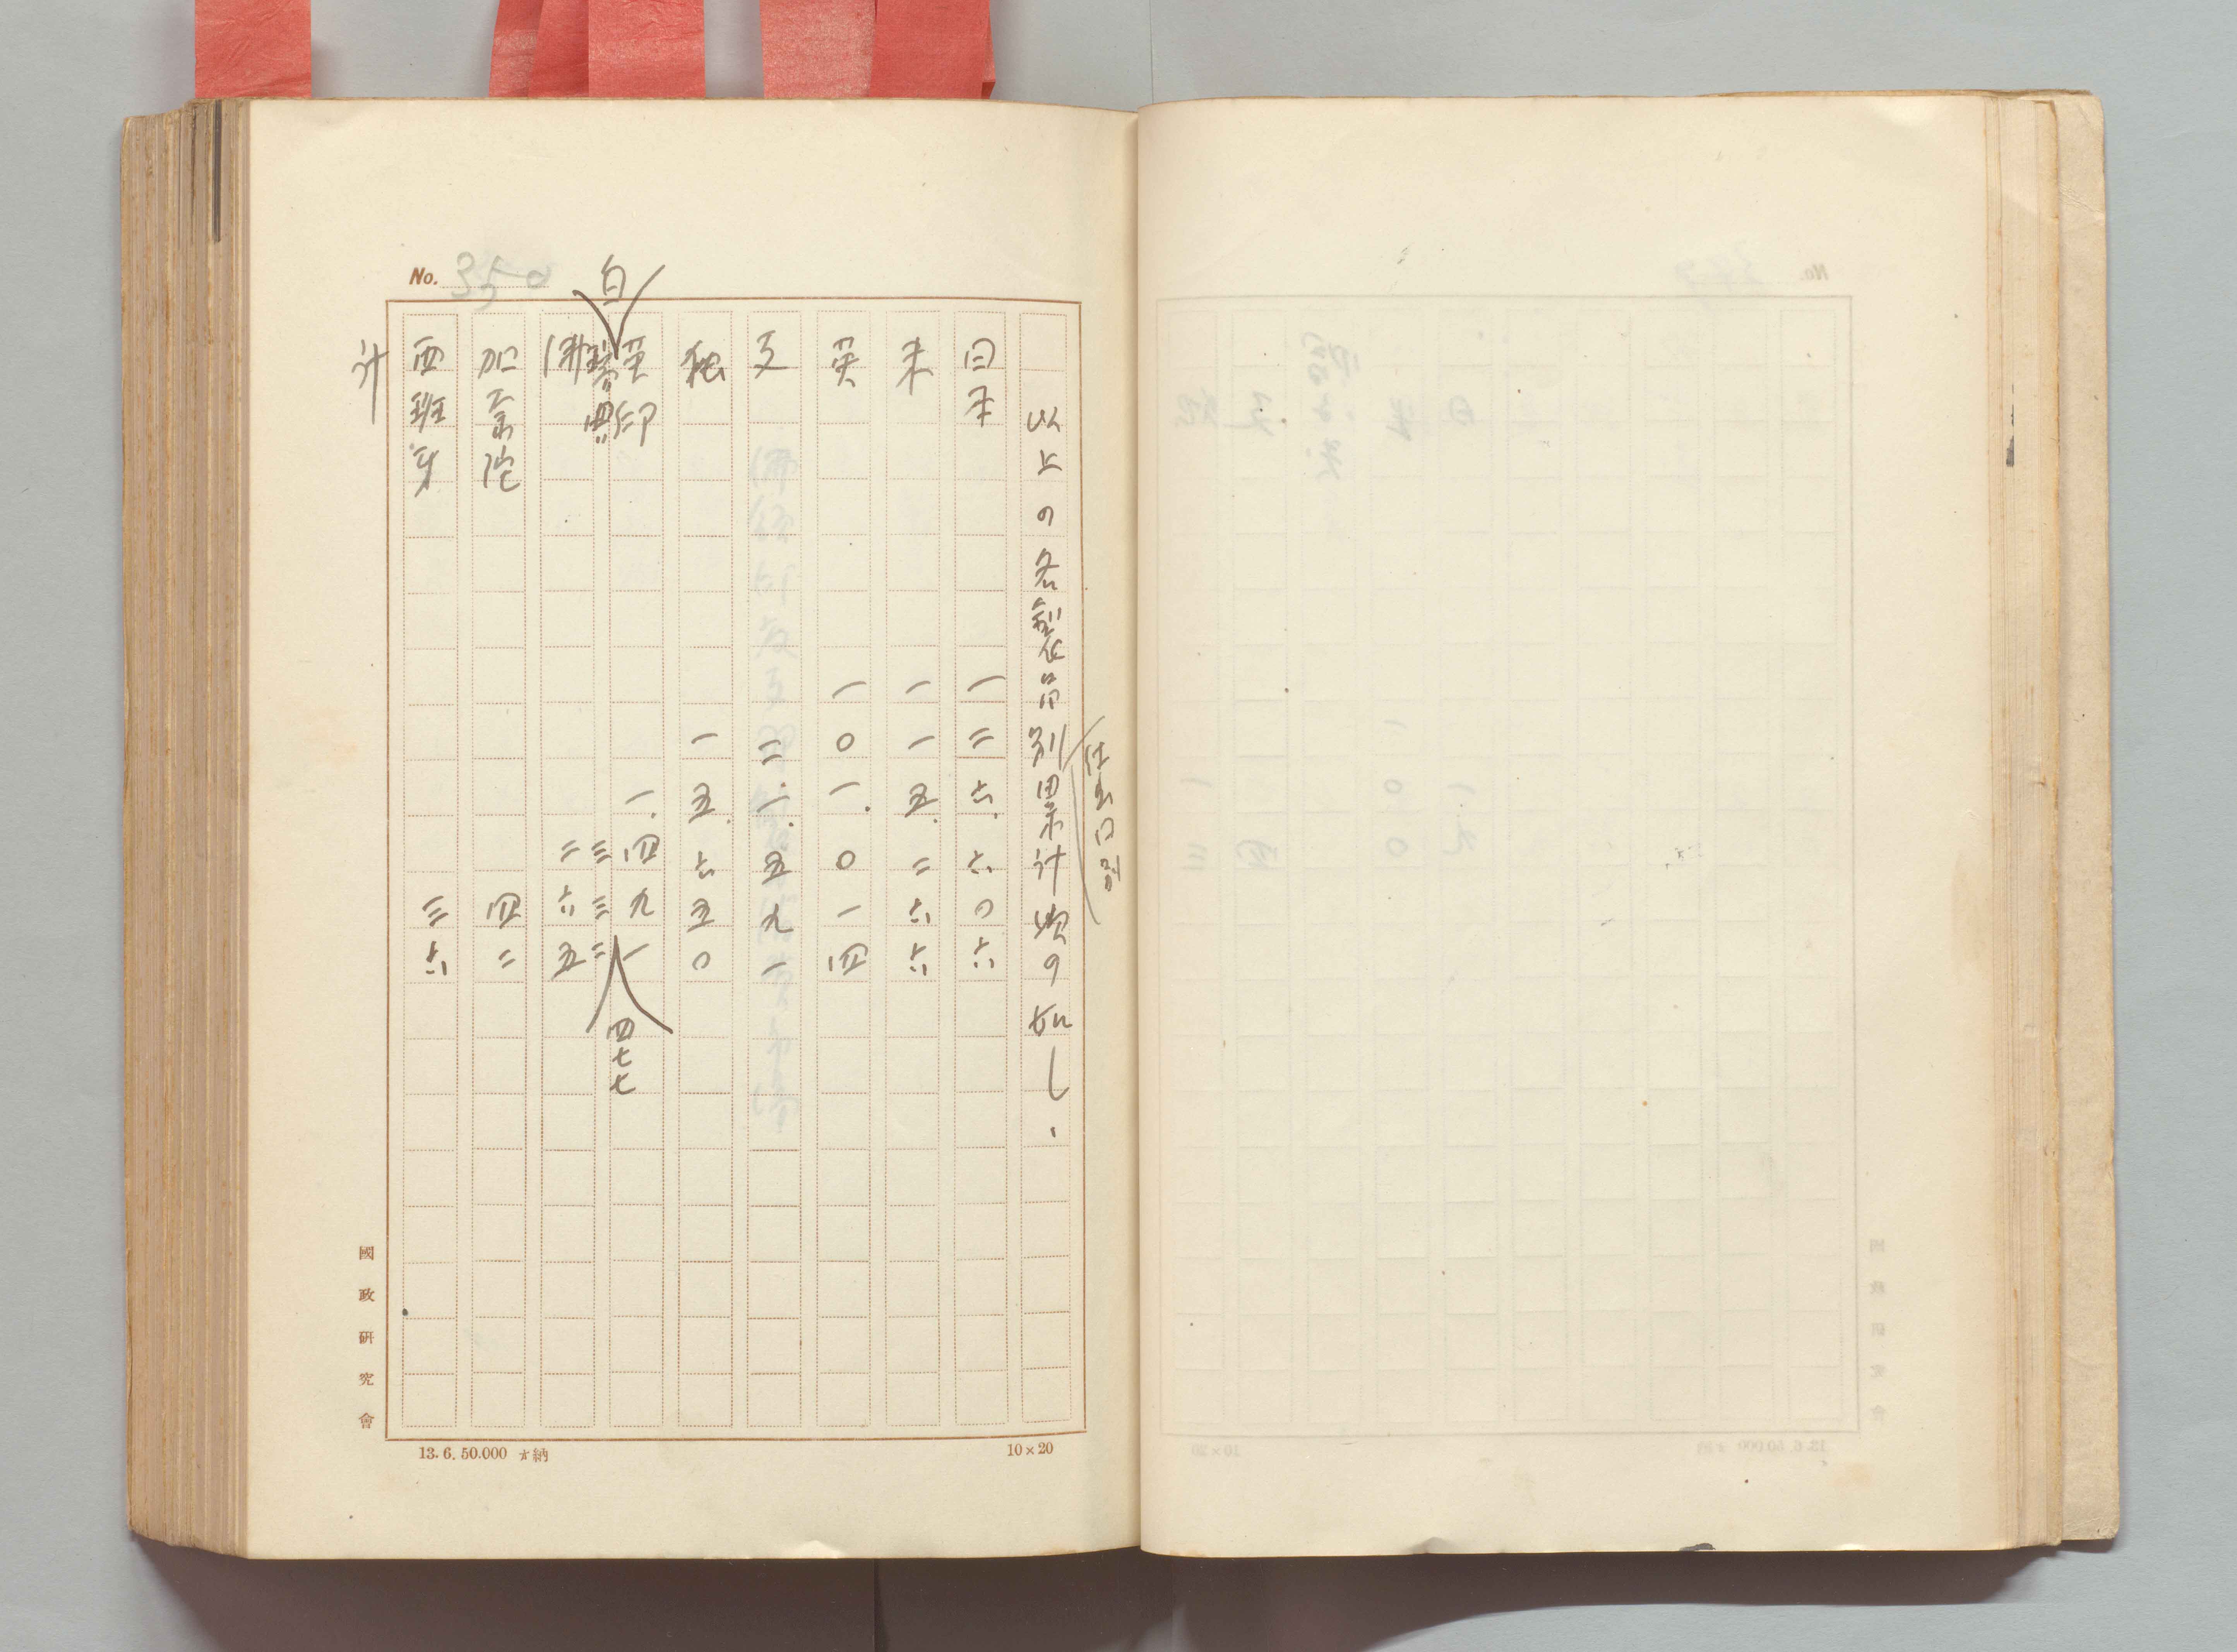 No. 350
仕出口別
以上の各製品別累計次の如し、
日本 一二六.六〇六
米 一一五.二六六
英 一〇一.〇一四
支 二一.五九一
独 一五.六五〇
英印 一.四九一
白 四七七
瑞典 三三三
佛 二六五
加奈陀 四二
西班牙 三六
計
國政研究會
13.6.50.000 納
10×20